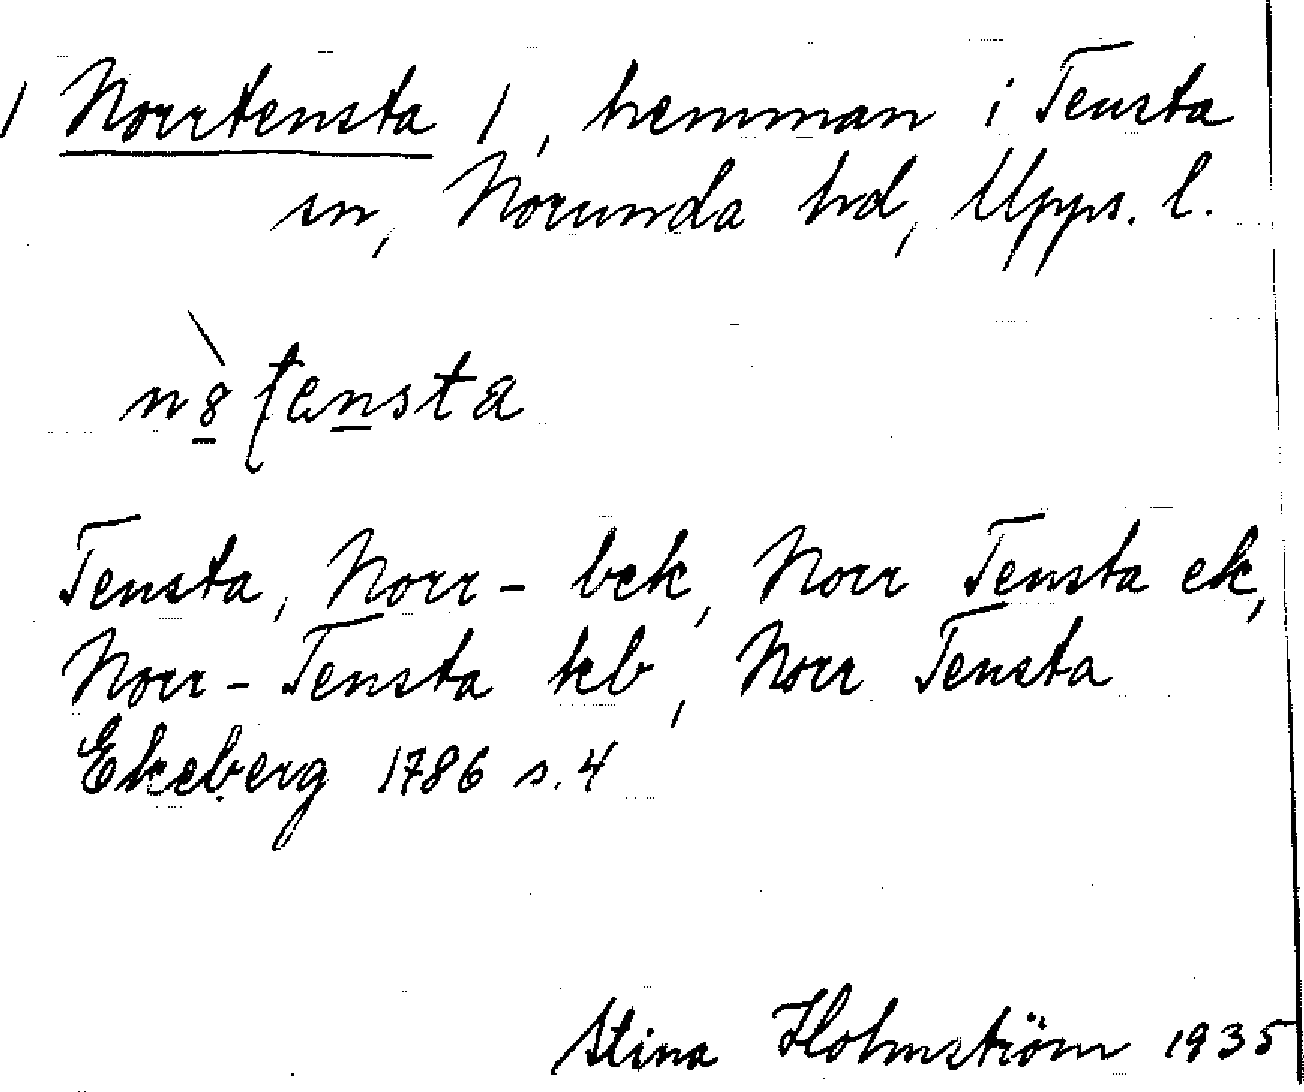 / Norrtensta /, hemman i Tensta
sn, Norunda hd, Upps. l.
Tensta, Norr- bek, Norr Tensta ek,
Norr-Tensta kb, Norr Tensta
Ekeberg 1786 s. 4
Stina Holmström 1935